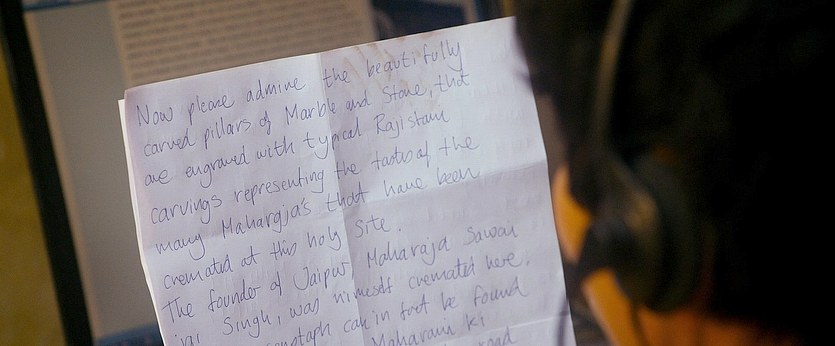 Now please admire the beautifully
carved pillars of Marble and Stone, that
are engraved with typical Rajistani
carvings representing the tastes of the
many Mahargja's that have been
cremated at this holy site.
The founder of Jaipur Maharaja Sawai
Jai Singh, was himself cremated here.
cenotaph can in fact be found
Maharani Ki
road